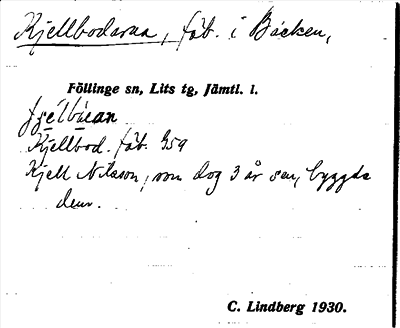 Kjellbodarna, fäb. i Bäcken,
Föllinge sn, Lits tg, Jämtl. l.
Kjellbod. fäb. 359
Kjell Nilsson, som dog 3 år sen, byggde
dem.
C. Lindberg 1930.